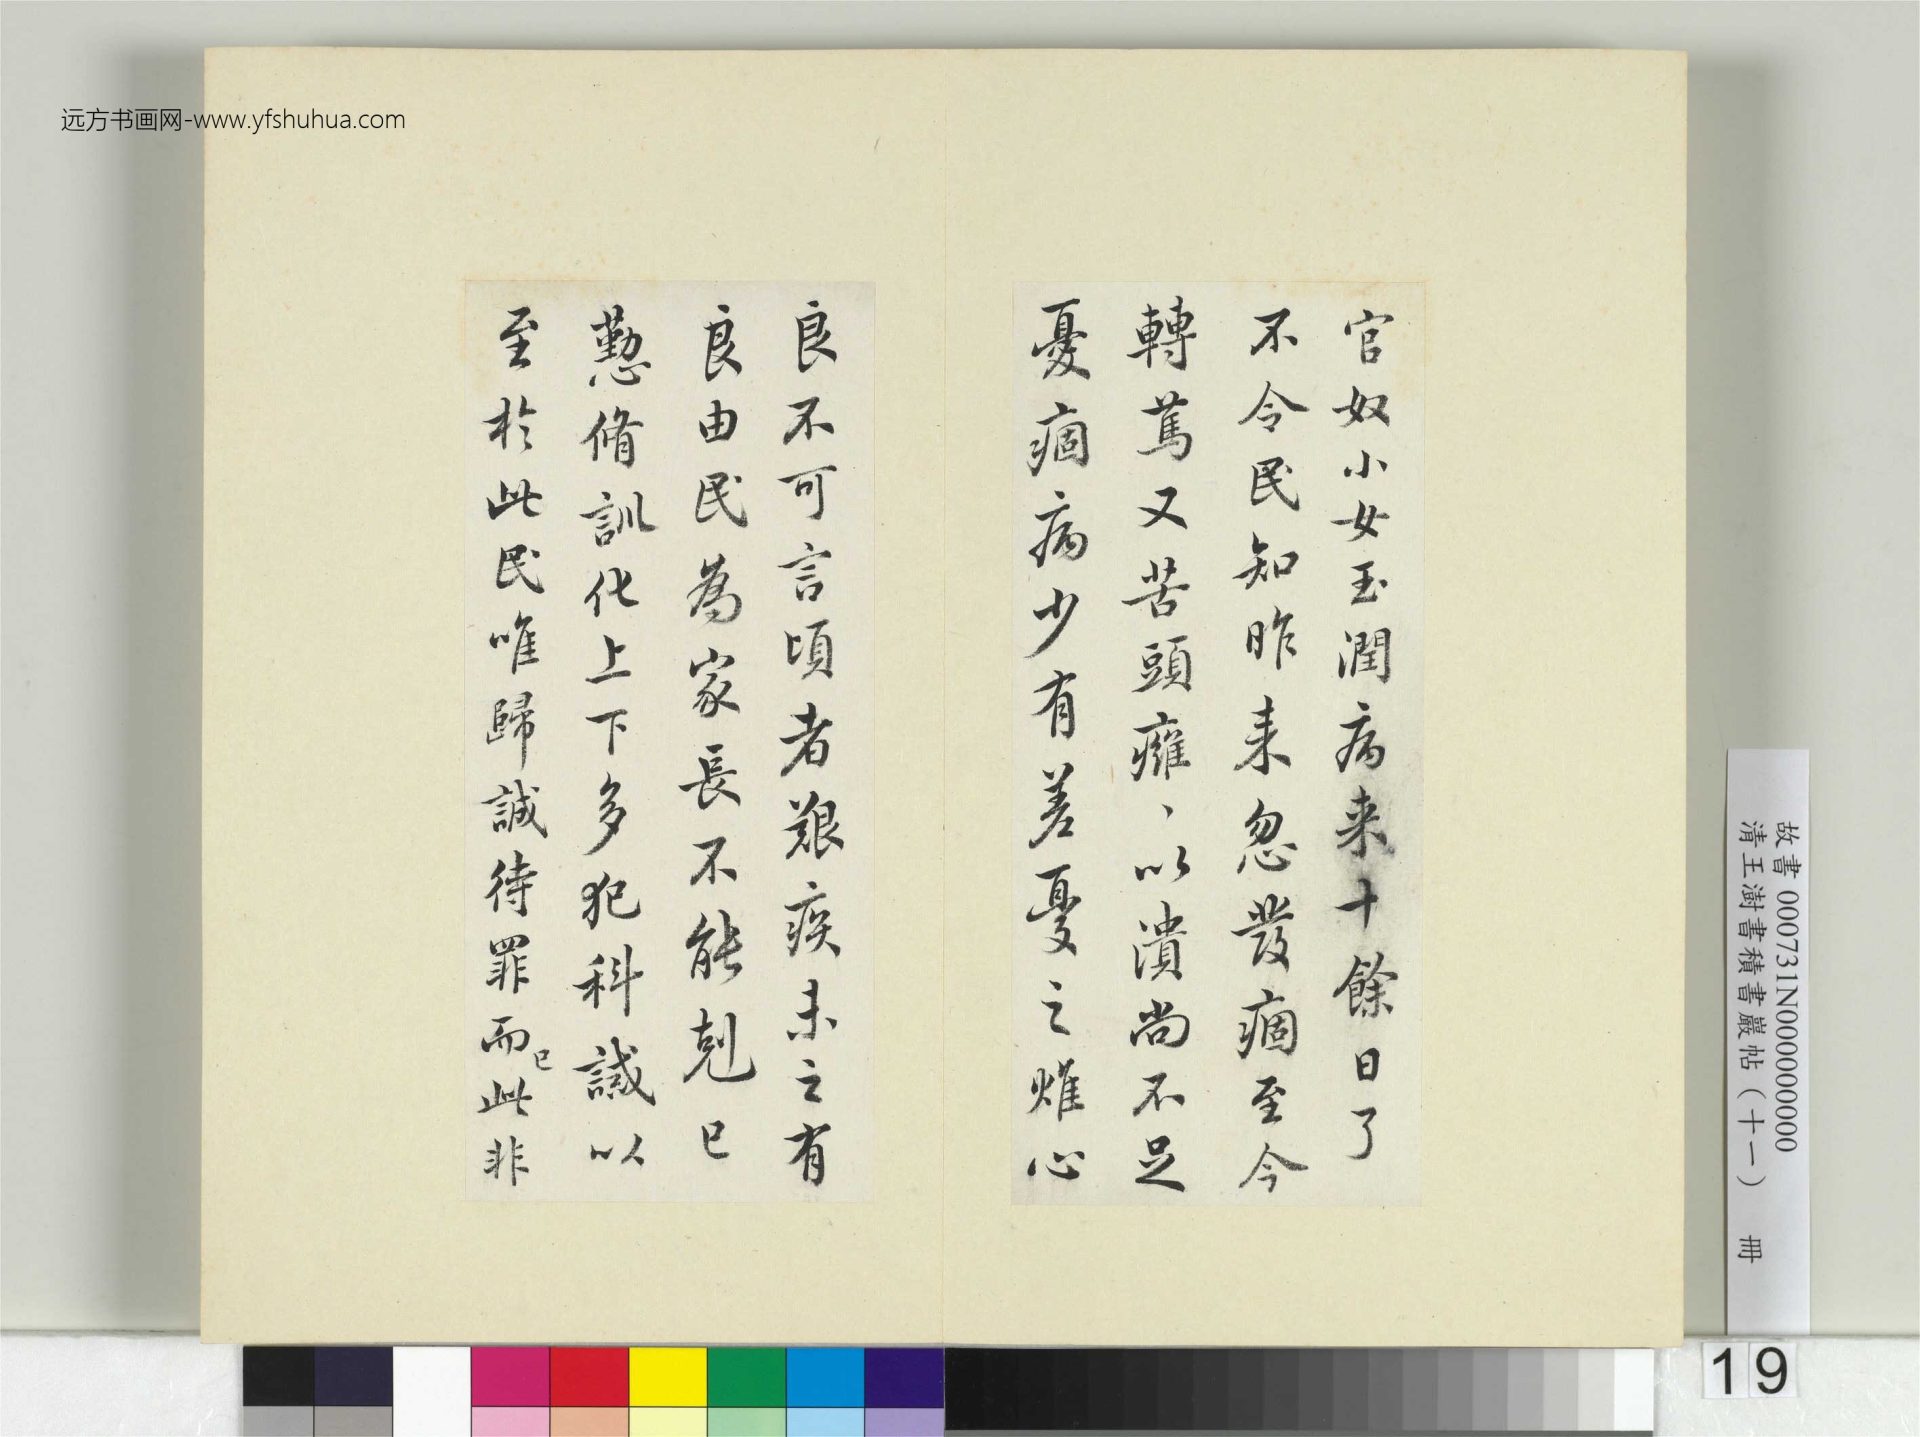 远方书画网-www.yfshuhua.com
官奴小女玉潤病来十餘日了
不令民知昨来忽發痼至今
轉篤又苦頭癰、以潰尚不足
憂痼病少有差憂之燋心
良不可言頃者艱疾未之有
良由民為家長不能剋己
懃脩訓化上下多犯科誡以
至於此民唯歸誠待罪而已此非
故書 000731N000000000
清王澍書積書巖帖（十一） 冊
19